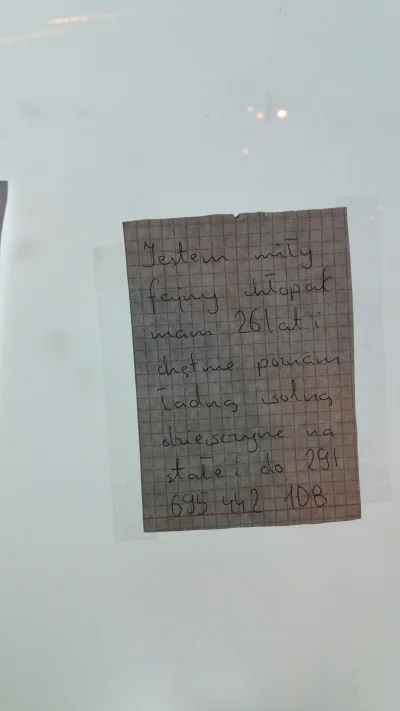 Jestem miły
fajny chłopak
mam 26 lat i
chętnie poznam
ładną
na
stałe i do 29l
695 442 108